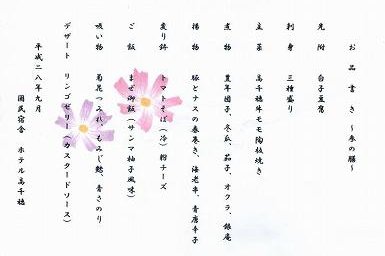 お品書き ～季の膳～
先附 白子豆腐
刺身 三種盛り
主菜 高千穂牛モモ陶板焼き
煮物 豊年団子、冬瓜、茄子、オクラ、銀庵
揚物 豚とナスの春巻き、海老串、青唐辛子
変り鉢 トマトそば(冷)粉チーズ
ご飯 まぜ御飯(サンマ柚子風味)
吸い物 菊花つみれ、もみじ麩、青さのり
デザート リンゴゼリー(カスタードソース)
平成二八年九月
国民宿舎 ホテル高千穂